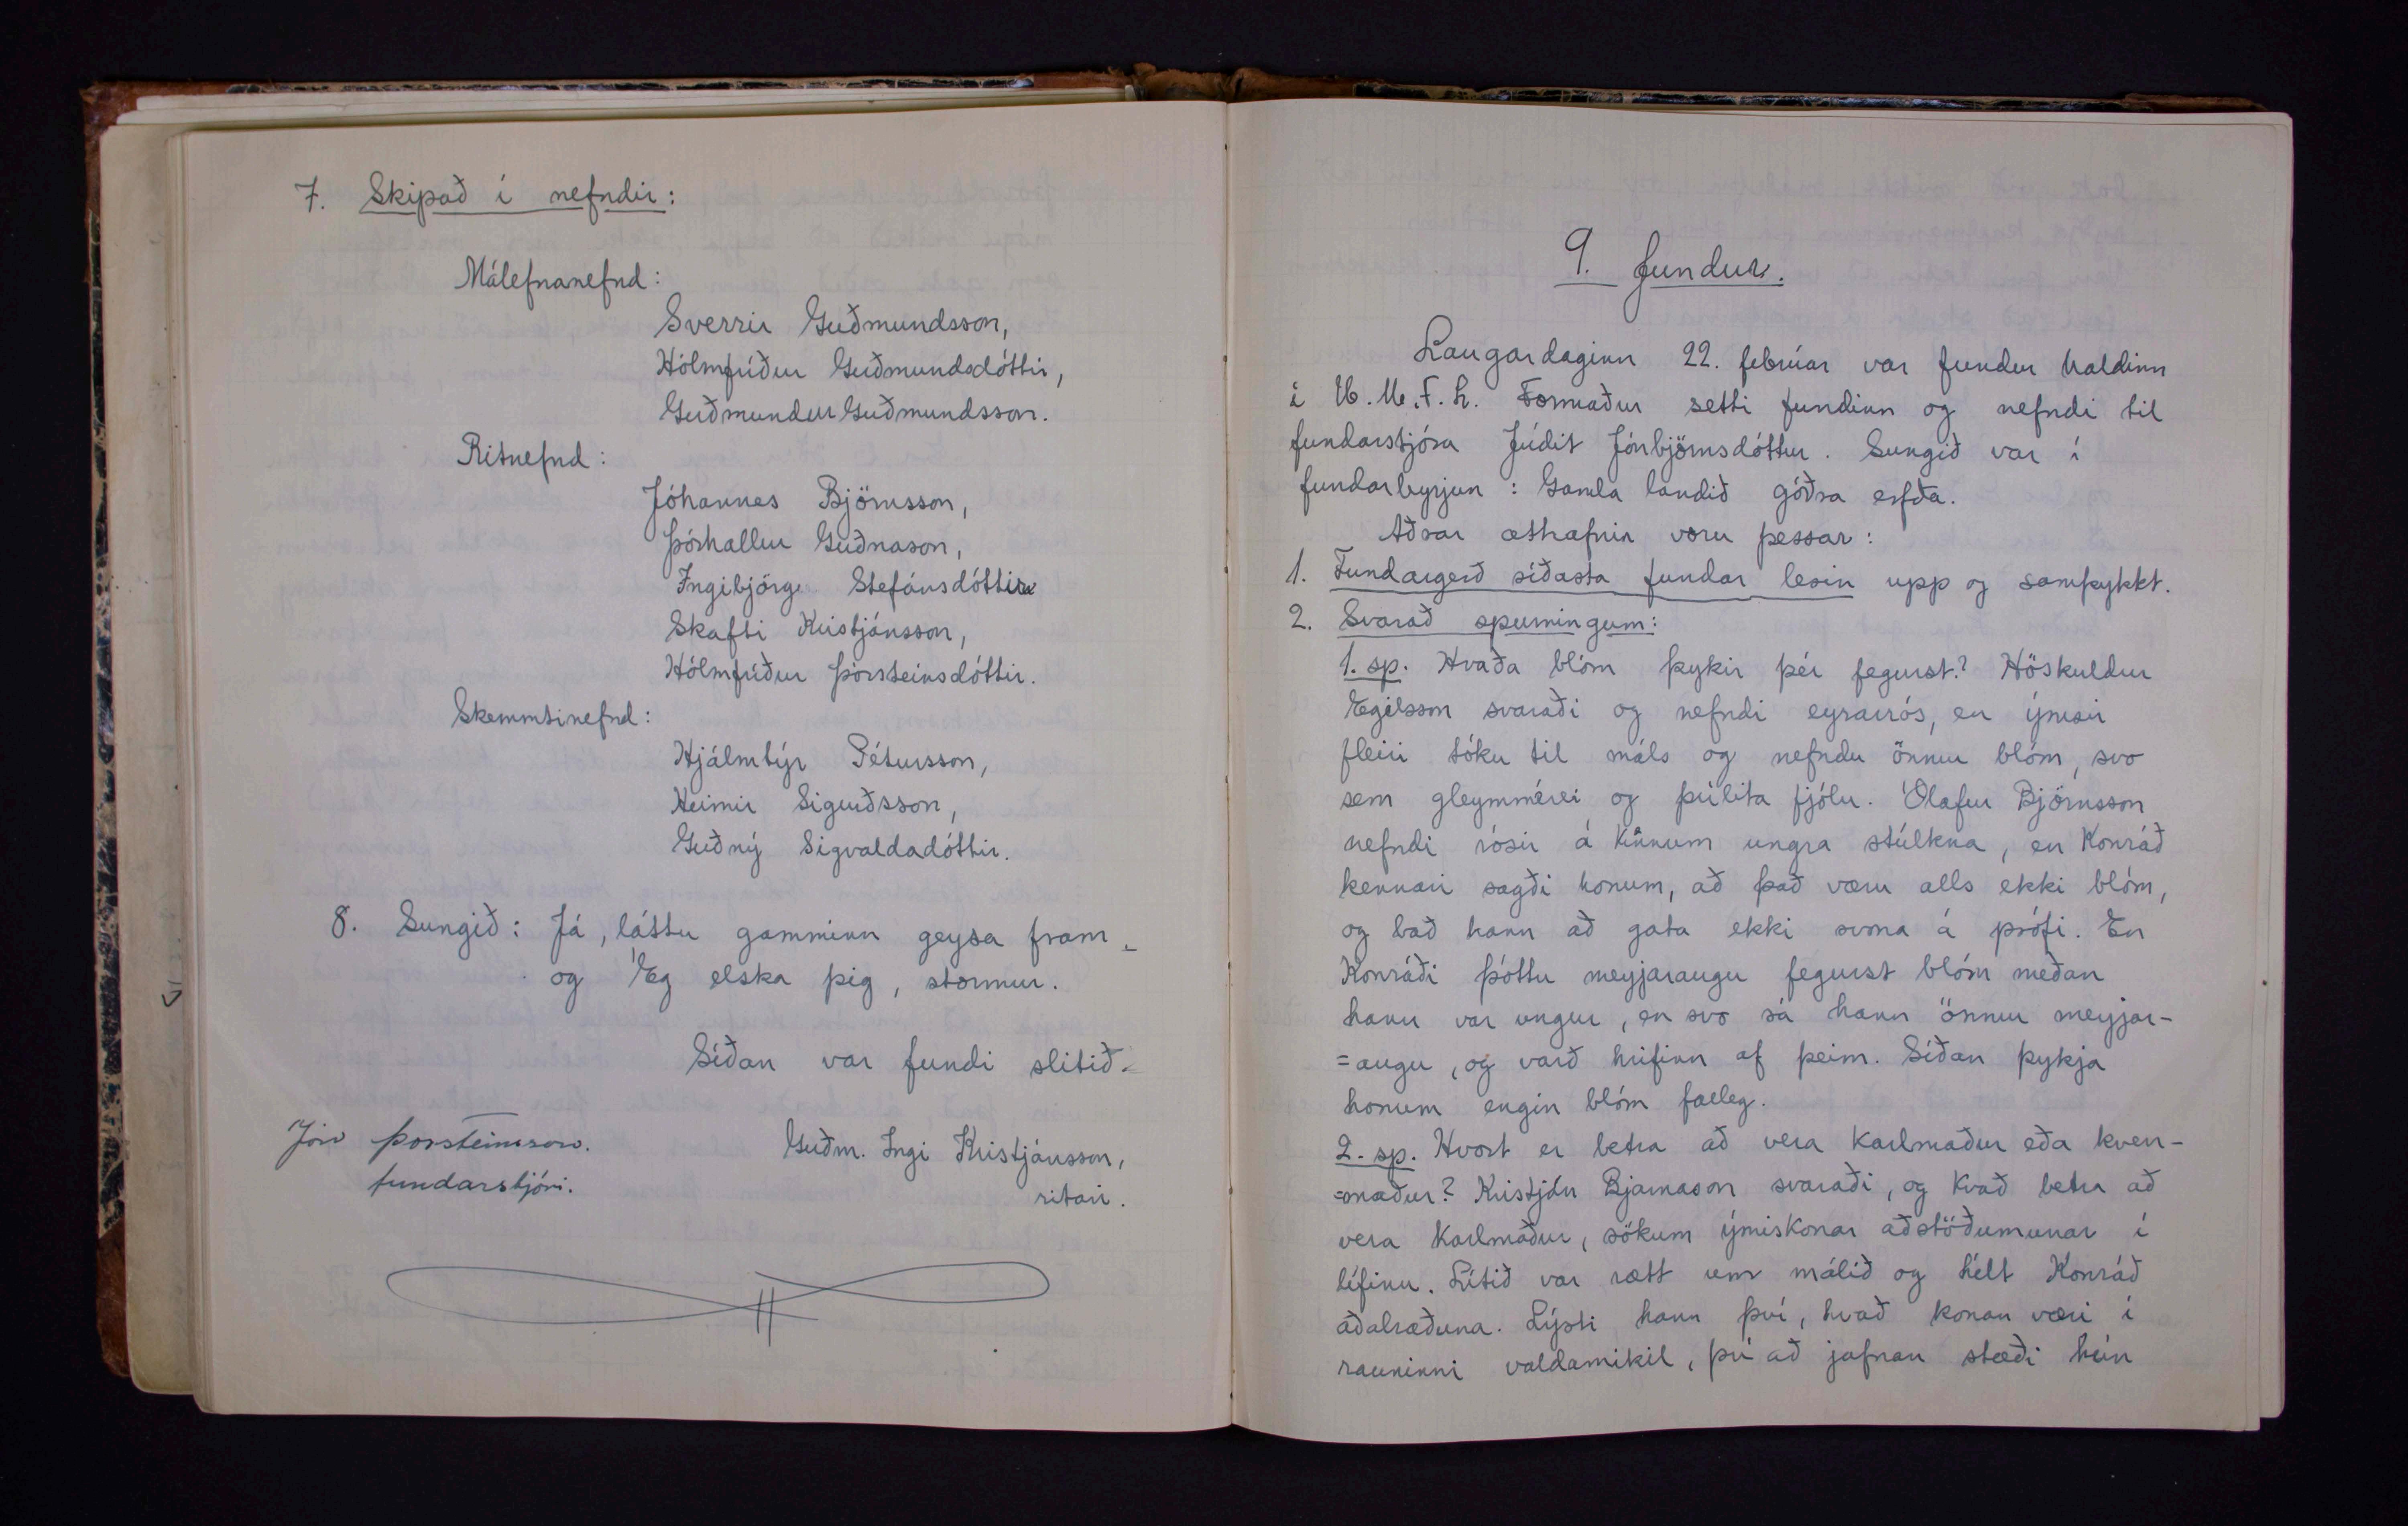 7. Skipað í nefndir:
Málefnanefnd:
Sverrir Guðmundsson,
Hólmfríður Guðmundsdóttir,
Guðmundur Guðmundsson.
Ritnefnd:
Jóhannes Björnsson,
Þórhallur Guðnason,
Ingibjörg Stefánsdóttir
Skafti Kristjánsson,
Hólmfríður Þórsteinsdóttir.
Skemmtinefnd:
Hjálmtýr Pétursson,
Heimir Sigurðsson,
Guðný Sigvaldadóttir.
8. Sungið: Já, láttu gamminn geysa fram,
og Ég elska þig, stormur.
Síðan var fundi slitið.
Jón Þorsteinsson.
fundarstjóri.
Guðm. Ingi Kristjánsson,
ritari.
9. fundur.
Laugardaginn 22. febrúar var fundur haldinn
í U.M.F.L. Formaður setti fundinn og nefndi til
fundarstjóra Júdit Jónbjörnsdóttur. Sungið var í
fundarbyrjun: Gamla landið góðra erfða.
Aðrar athafnir voru þessar:
1. Fundargerð síðasta fundar lesin upp og samþykkt.
2. Svarað spurningum:
1. sp. Hvaða blóm þykir þér fegurst? Höskuldur
Egilsson svaraði og nefndi eyrarrós, en ýmsir
fleiri tóku til máls og nefndu önnur blóm, svo
sem gleymmérei og þrílita fjólu. Ólafur Björnsson
nefndi rósir á kinnum ungra stúlkna, en Konráð
kennari sagði honum, að það væru alls ekki blóm,
og bað hann að gata ekki svona á prófi. En
Konráði þóttu meyjaraugu fegurst blóm meðan
hann var ungur, en svo sá hann önnur meyjar-
=augu, og varð hrifinn af þeim. Síðan þykja
honum engin blóm falleg.
2. sp. Hvort er betra að vera karlmaður eða kven-
=maður? Kristján Bjarnason svaraði, og kvað betra að
vera karlmaður, sökum ýmiskonar aðstöðumunar í
lífinu. Lítið var rætt um málið og hélt Konráð
aðalræðuna. Lýsti hann því, hvað konan væri í
rauninni valdamikil, því að jafnan stæði hún